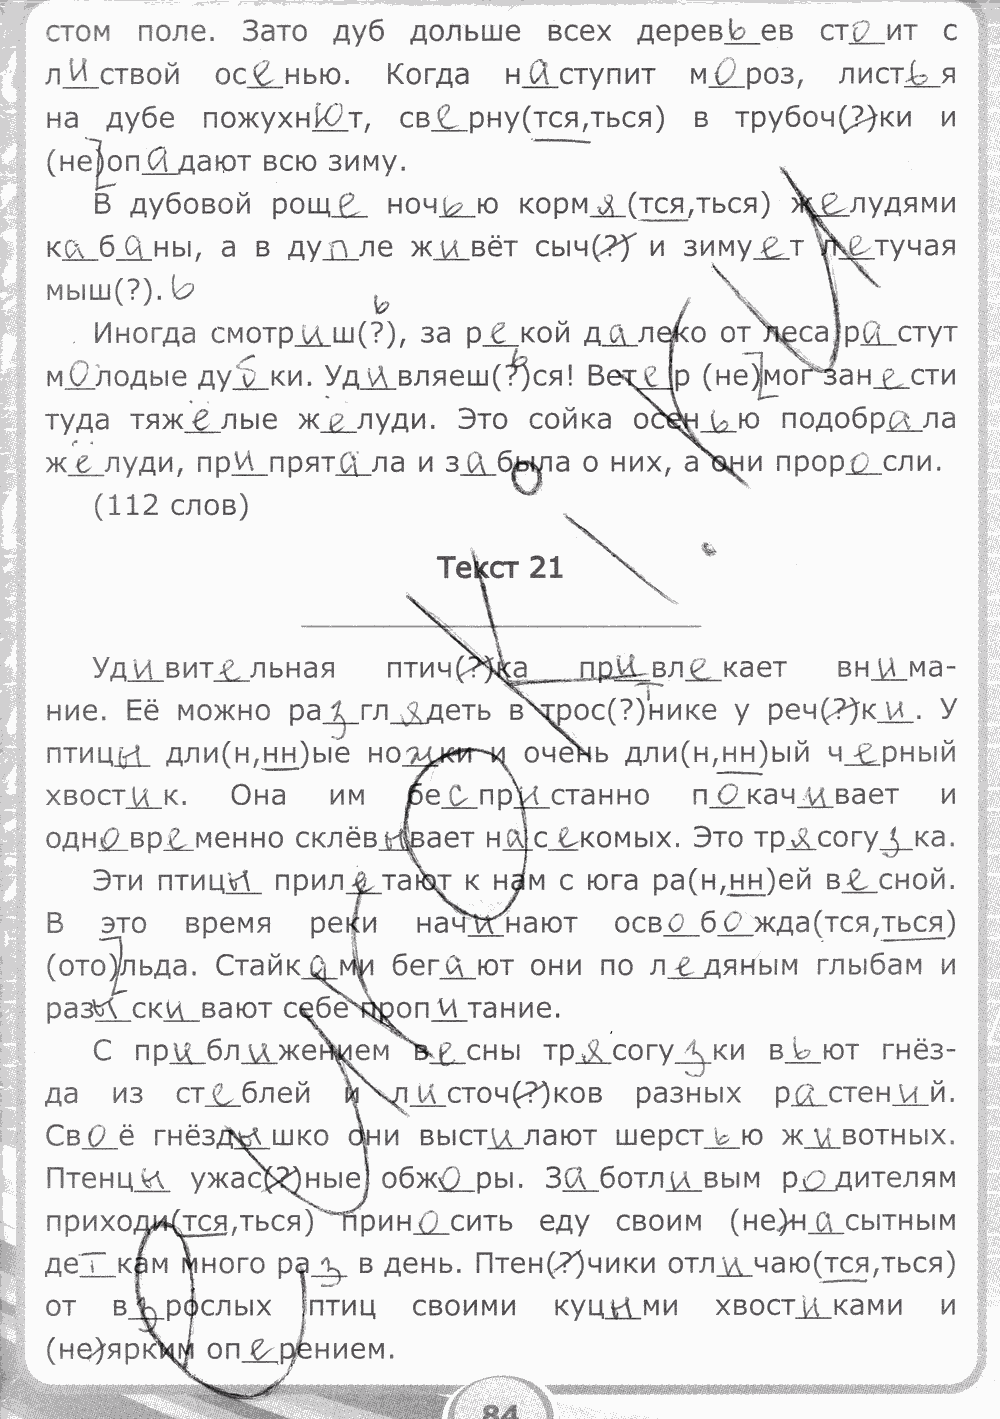 стом поле. Зато дуб дольше всех деревьев стоит с
листвой осенью. Когда наступит мороз, листья
на дубе пожухнют, сверну(тся,ться) в трубоч(?)ки и
(не)опадают всю зиму.
В дубовой роще ночью кормя(тся,ться) желудями
кабаны, а в дупле живёт сыч(?) и зимует летучая
мыш(?).ь
Иногда смотриш(?)ь, за рекой далеко от леса растут
молодые дубки. Удивляеш(?)ься! Ветер (не)мог занести
туда тяжёлые жёлуди. Это сойка осенью подобрала
жёлуди, припрятала и забыла о них, а они проросли.
(112 слов)
Текст 21
Удивительная птич(?)ка привлекает внима-
ние. Её можно разглядеть в трос(?)тнике у реч(?)ки. У
птицы дли(н,нн)ые ножки и очень дли(н,нн)ый черный
хвостик. Она им беспристанно покачивает и
одновременно склёвывает насекомых. Это трясогузка.
Эти птицы прилетают к нам с юга ра(н,нн)ей весной.
В это время реки начинают освобожда(тся,ться)
(ото)льда. Стайками бегают они по ледяным глыбам и
разыскивают себе пропитание.
С приближением весны трясогузки вьют гнёз-
да из стеблей и листоч(?)ков разных растений.
Своё гнёздышко они выстилают шерстью животных.
Птенцы ужас(?)ные обжоры. Заботливым родителям
приходи(тся,ться) приносить еду своим (не)насытным
деткам много раз в день. Птен(?)чики отличаю(тся,ться)
от взрослых птиц своими куцыми хвостиками и
(не)ярким оперением.
84